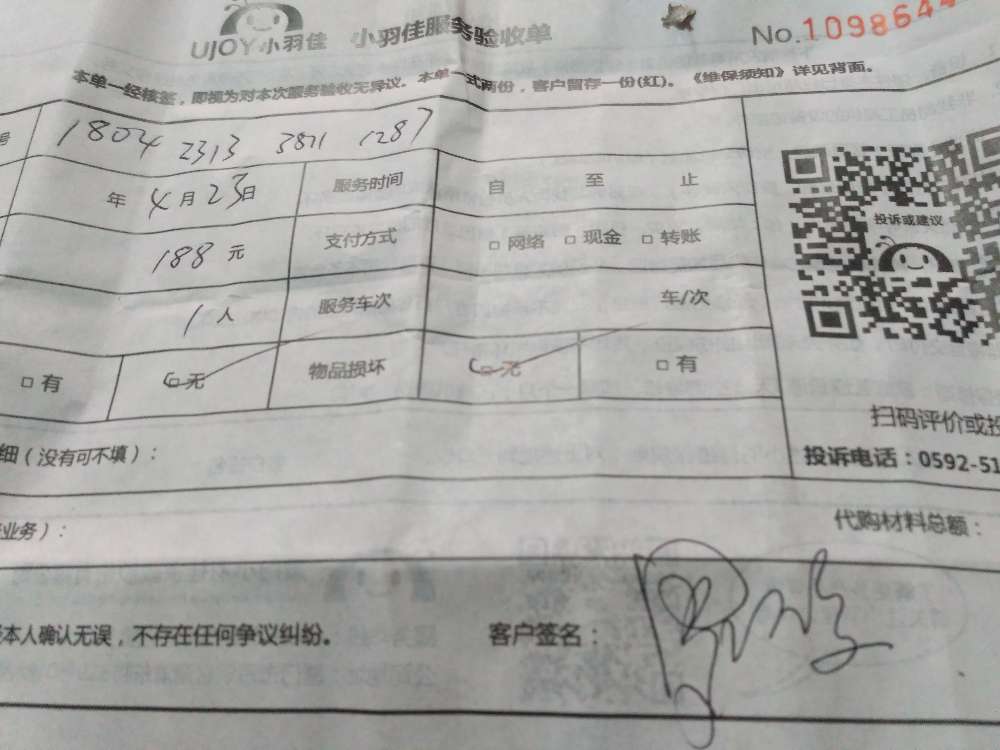 UJOY小羽佳 小羽佳服务验收单 No.1098644
本单一经核签，即视为对本次服务验收无异议。本单一式两份，客户留存一份(红)。《维保须知》详见背面。
号 1804 2313 3811 1287
年 4月23日 服务时间 自 至 止
188元 支付方式 □ 网络 □ 现金 □ 转账
1人 服务车次 车/次
□ 有 □ 无 物品损坏 □ 无 □ 有
投诉或建议
扫码评价或投
细（没有可不填）：
投诉电话：0592-51
业务）：
代购材料总额：
本人确认无误，不存在任何争议纠纷。 客户签名：